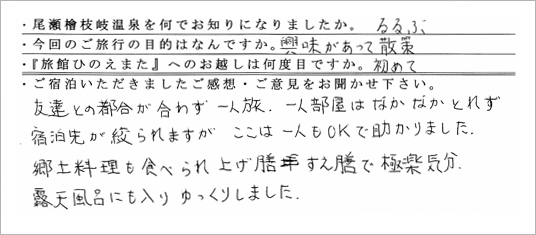 ・尾瀬檜枝岐温泉を何でお知りになりましたか。 るるぶ
・今回のご旅行の目的はなんですか。興味があって散策
・『旅館ひのえまた』へのお越しは何度目ですか。初めて
・ご宿泊いただきましたご感想・ご意見をお聞かせ下さい。
友達との都合が合わず一人旅. 一人部屋はなかなかとれず
宿泊先が絞られますが ここは一人もOKで助かりました.
郷土料理も食べられ 上げ膳 すえ膳で極楽気分.
露天風呂にも入り ゆっくりしました.